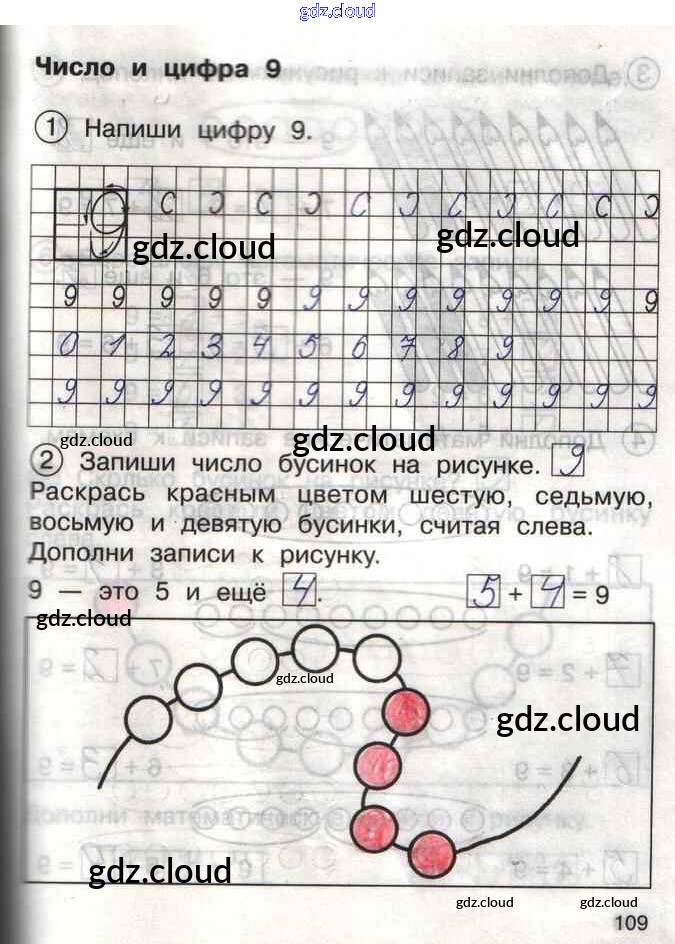 gdz.cloud
Число и цифра 9
1 Напиши цифру 9.
9 С Э С Э С Э С Э С С Э
gdz.cloud gdz.cloud
9 9 9 9 9 9 9 9 9 9 9 9 9
0 1 2 3 4 5 6 7 8 9
9 9 9 9 9 9 9 9 9 9 9 9 9
gdz.cloud gdz.cloud
2 Запиши число бусинок на рисунке. 9
Раскрась красным цветом шестую, седьмую,
восьмую и девятую бусинки, считая слева.
Дополни записи к рисунку.
9 — это 5 и ещё 4. 5 + 4 = 9
gdz.cloud
gdz.cloud
gdz.cloud
gdz.cloud
gdz.cloud gdz.cloud
109